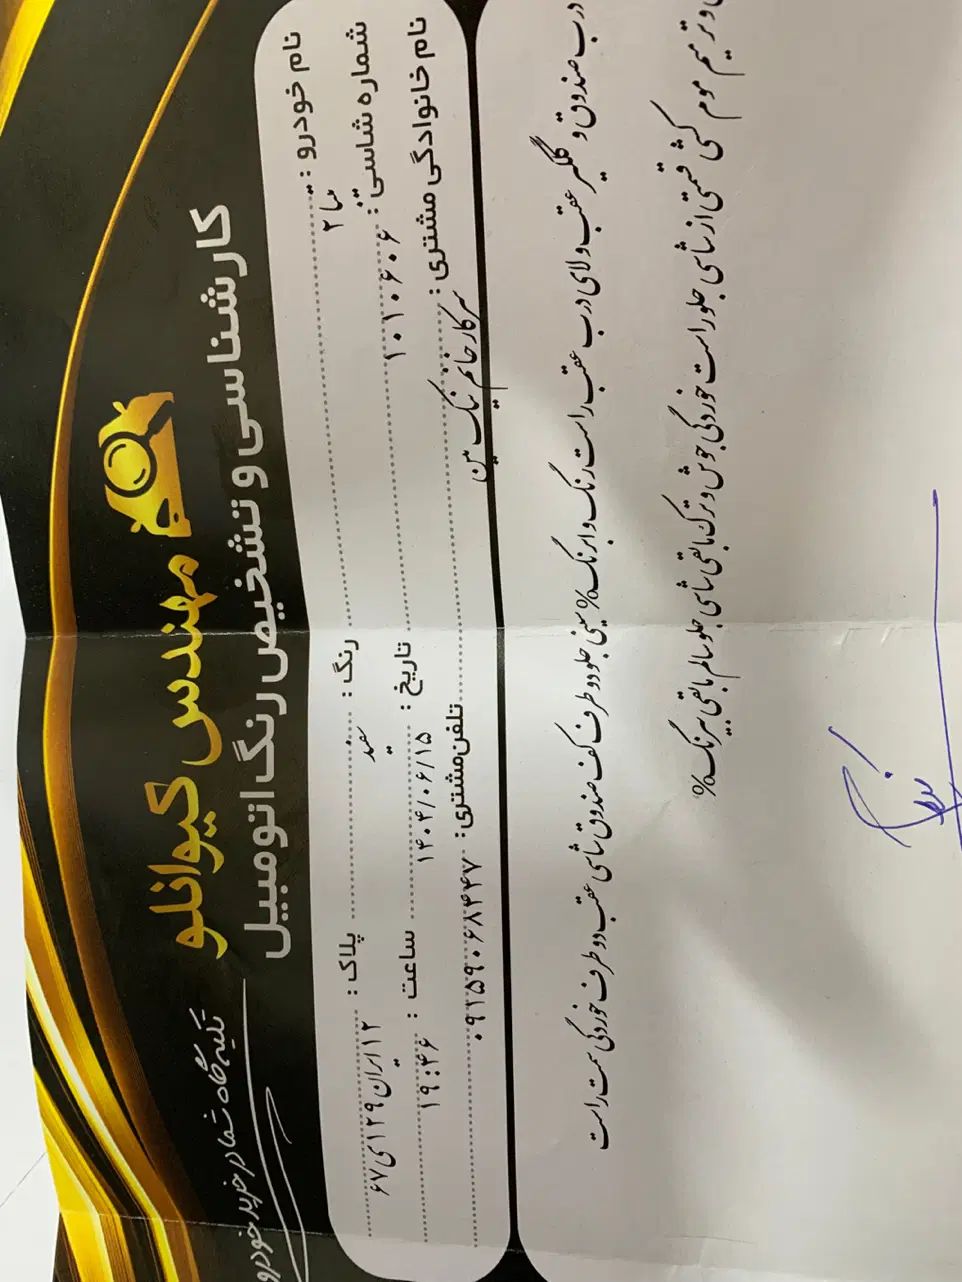 مهندس کیوانلو
کارشناسی و تشخیص رنگ اتومبیل
تکیه گاه شما در خرید خودرو
نام خودرو : ساینا رنگ : سفید پلاک : ۱۲ ایران ۱۲۹ ی ۶۷
شماره شاسی : ۱۰۱۰۶۰۶ تاریخ : ۱۴۰۴/۰۶/۱۵ ساعت : ۱۹:۴۶
نام خانوادگی مشتری : سرکار خانم نیک بین تلفن مشتری : ۰۹۱۵۹۰۶۸۴۴۷
درب صندوق و گلگیر عقب و لای درب عقب راست رنگ و ابرنگ% سینی جلو دو طرف کف صندوق شاسی عقب دو طرف خوردگی سمت راست
و ترمیم موم کشی قسمتی از شاسی جلو راست خوردگی جوش و ترک مابقی شاسی جلو سالم مابقی بیرنگ%